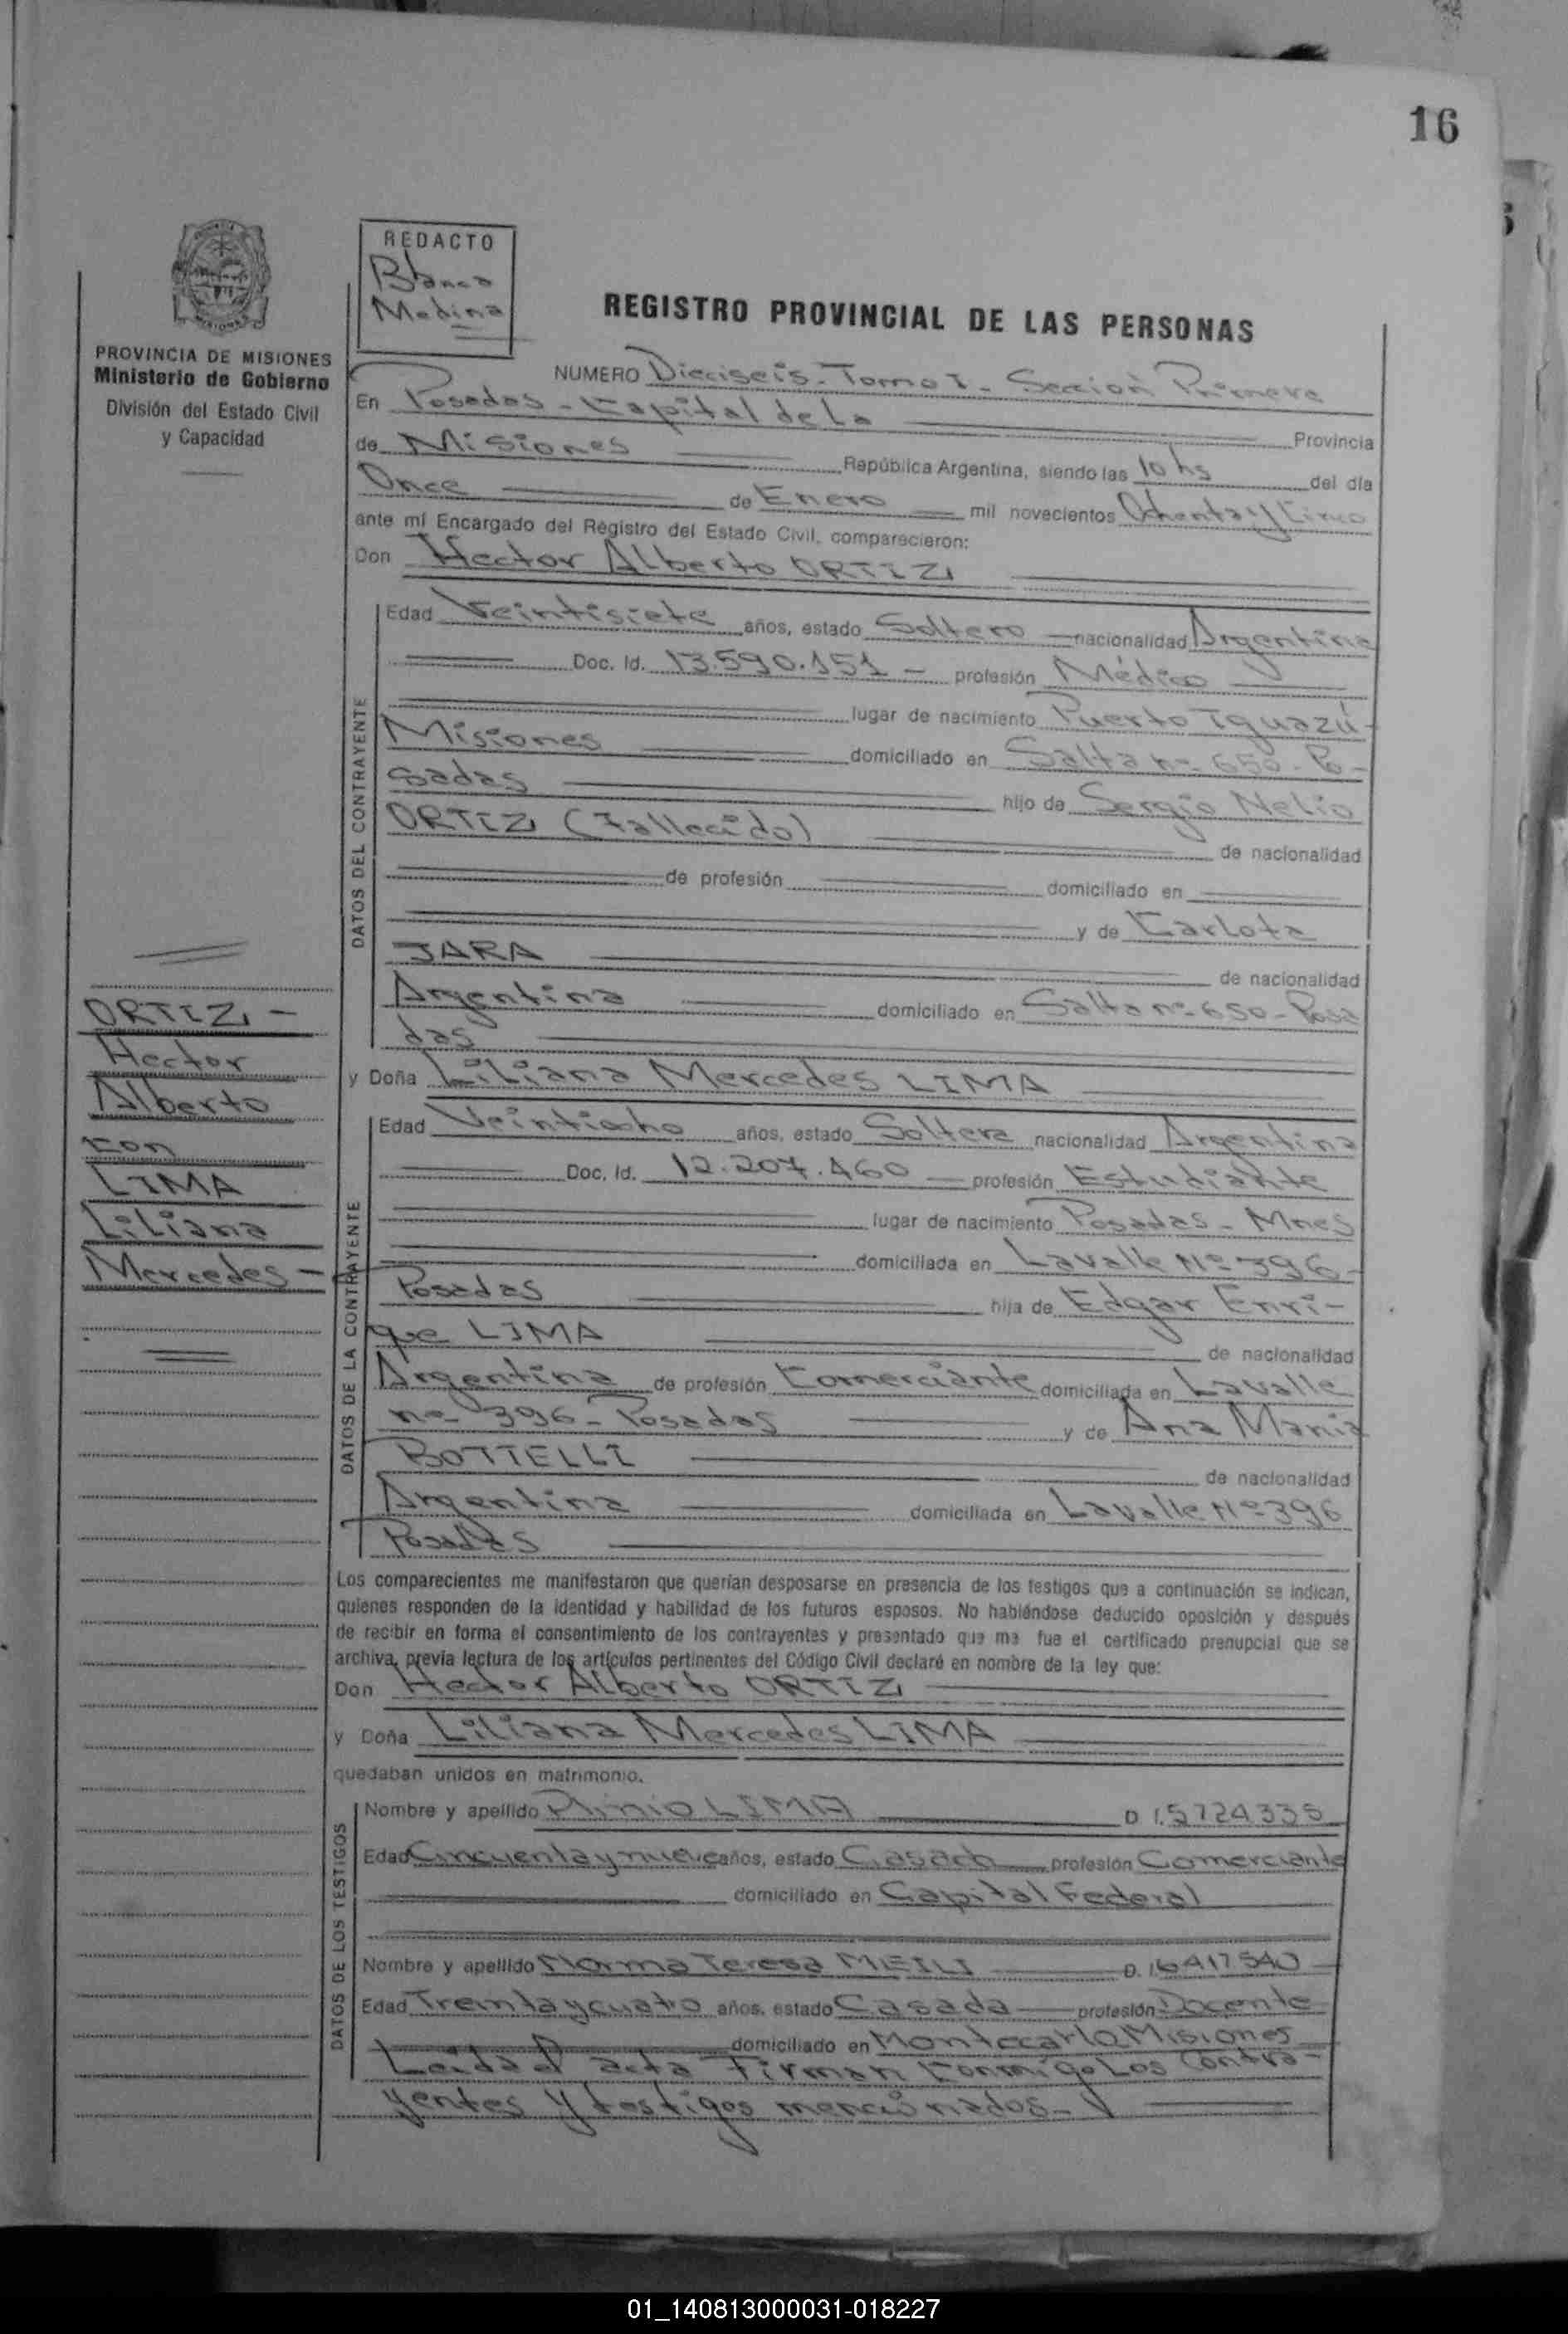 16
REDACTO
Blanca
Medina
REGISTRO PROVINCIAL DE LAS PERSONAS
PROVINCIA DE MISIONES
Ministerio de Gobierno
División del Estado Civil
y Capacidad
NUMERO Dieciseis - Tomo I - Sección Primera
En Posadas - Capital de la Provincia
de Misiones República Argentina, siendo las 10 hs del día
Once de Enero mil novecientos Ochenta y Cinco
ante mí Encargado del Registro del Estado Civil, comparecieron:
Don Hector Alberto ORTIZ
DATOS DEL CONTRAYENTE
Edad Veintisiete años, estado Soltero nacionalidad Argentina
Doc. Id. 13.590.151 - profesión Médico
lugar de nacimiento Puerto Iguazú -
Misiones domiciliado en Salta nº 650 - Po-
sadas hijo de Sergio Nelio
ORTIZ (Fallecido) de nacionalidad
de profesión domiciliado en
y de Carlota
JARA de nacionalidad
Argentina domiciliado en Salta nº 650 - Posa
das
ORTIZ -
Hector
Alberto
con
LIMA
Liliana
Mercedes -
y Doña Liliana Mercedes LIMA
DATOS DE LA CONTRAYENTE
Edad Veintiocho años, estado Soltera nacionalidad Argentina
Doc. Id. 12.207.460 - profesión Estudiante
lugar de nacimiento Posadas - Mnes
domiciliada en Lavalle Nº 396 -
Posadas hija de Edgar Enri-
que LIMA de nacionalidad
Argentina de profesión Comerciante domiciliada en Lavalle
nº 396 - Posadas y de Ana Maria
BOTTELLI de nacionalidad
Argentina domiciliada en Lavalle Nº 396
Posadas
Los comparecientes me manifestaron que querían desposarse en presencia de los testigos que a continuación se indican,
quienes responden de la identidad y habilidad de los futuros esposos. No habiéndose deducido oposición y después
de recibir en forma el consentimiento de los contrayentes y presentado que me fue el certificado prenupcial que se
archiva, previa lectura de los artículos pertinentes del Código Civil declaré en nombre de la ley que:
Don Hector Alberto ORTIZ
y Doña Liliana Mercedes LIMA
quedaban unidos en matrimonio.
DATOS DE LOS TESTIGOS
Nombre y apellido Plinio LIMA D.I. 5724335
Edad Cincuenta y nueve años, estado Casado profesión Comerciante
domiciliado en Capital Federal
Nombre y apellido Norma Teresa MEILI D.I. 6417540
Edad Treinta y cuatro años, estado Casada profesión Docente
domiciliado en Montecarlo Misiones
Leida el acta Firman conmigo Los Contra-
yentes y testigos mencionados -
01_140813000031-018227